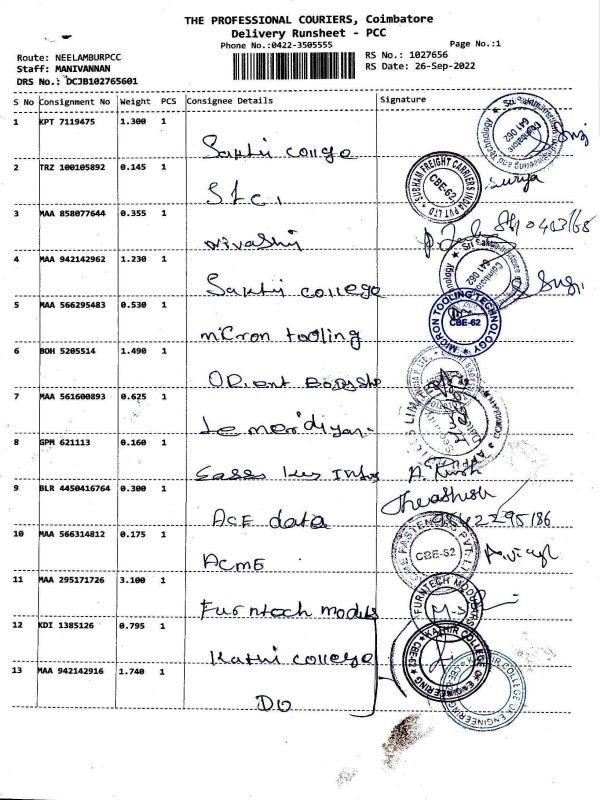 THE PROFESSIONAL COURIERS, Coimbatore
Delivery Runsheet - PCC
Phone No.:0422-3505555
Page No.:1
Route: NEELAMBURPCC
Staff: MANIVANNAN
DRS No.: DCJB102765601
RS No.: 1027656
RS Date: 26-Sep-2022
S No Consignment No Weight PCS Consignee Details Signature
1 KPT 7119475 1.300 1
Sakthi college
2 TRZ 100105892 0.145 1
SUBHAM FREIGHT CARRIERS INDIA PVT LTD CBE-62
Surya
3 MAA 858077644 0.355 1
4 MAA 942142962 1.230 1
Sakthi college
5 MAA 566295483 0.530 1
micron tooling
MICRON TOOLING TECHNOLOGY CBE-62
6 BOH 5205514 1.490 1
Orient
7 MAA 561600893 0.625 1
Lemeridiyan
8 GPM 621113 0.160 1
9 BLR 4450416764 0.300 1
ACE data
10 MAA 566314812 0.175 1
ACME
11 MAA 295171726 3.100 1
Furntech
12 KDI 1385126 0.795 1
Kathi college
KATHIR COLLEGE OF ENGINEERING CBE-62
13 MAA 942142916 1.740 1
DO